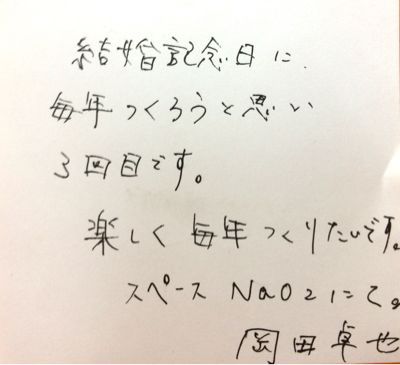 結婚記念日に
毎年つくろうと思い
3回目です。
楽しく毎年つくりたいです。
スペースNaO2にて。
岡田卓也